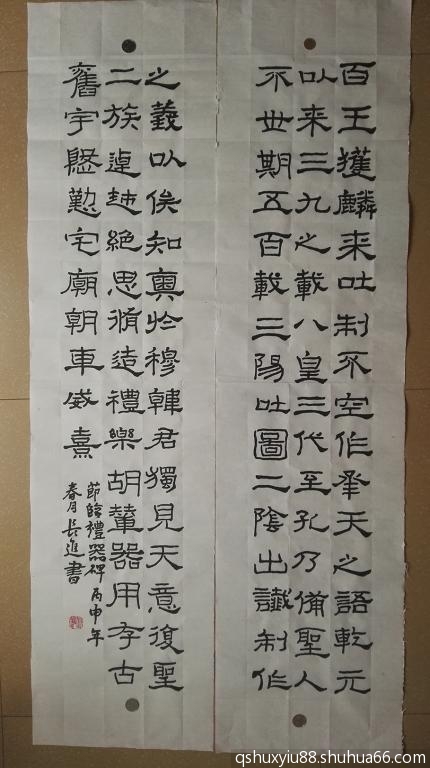 百王獲麟来吐制不空作承天之語乾元
以来三九之載八皇三代至孔乃備聖人
不世期五百載三陽吐圖二陰出讖制作
之義以俟知奥於穆韓君獨見天意復聖
二族逴越絕思脩造禮樂胡輦器用存古
舊宇慇懃宅廟朝車威熹
節臨禮器碑丙申年
春月長進書
qshuxyiu88.shuhua66.com